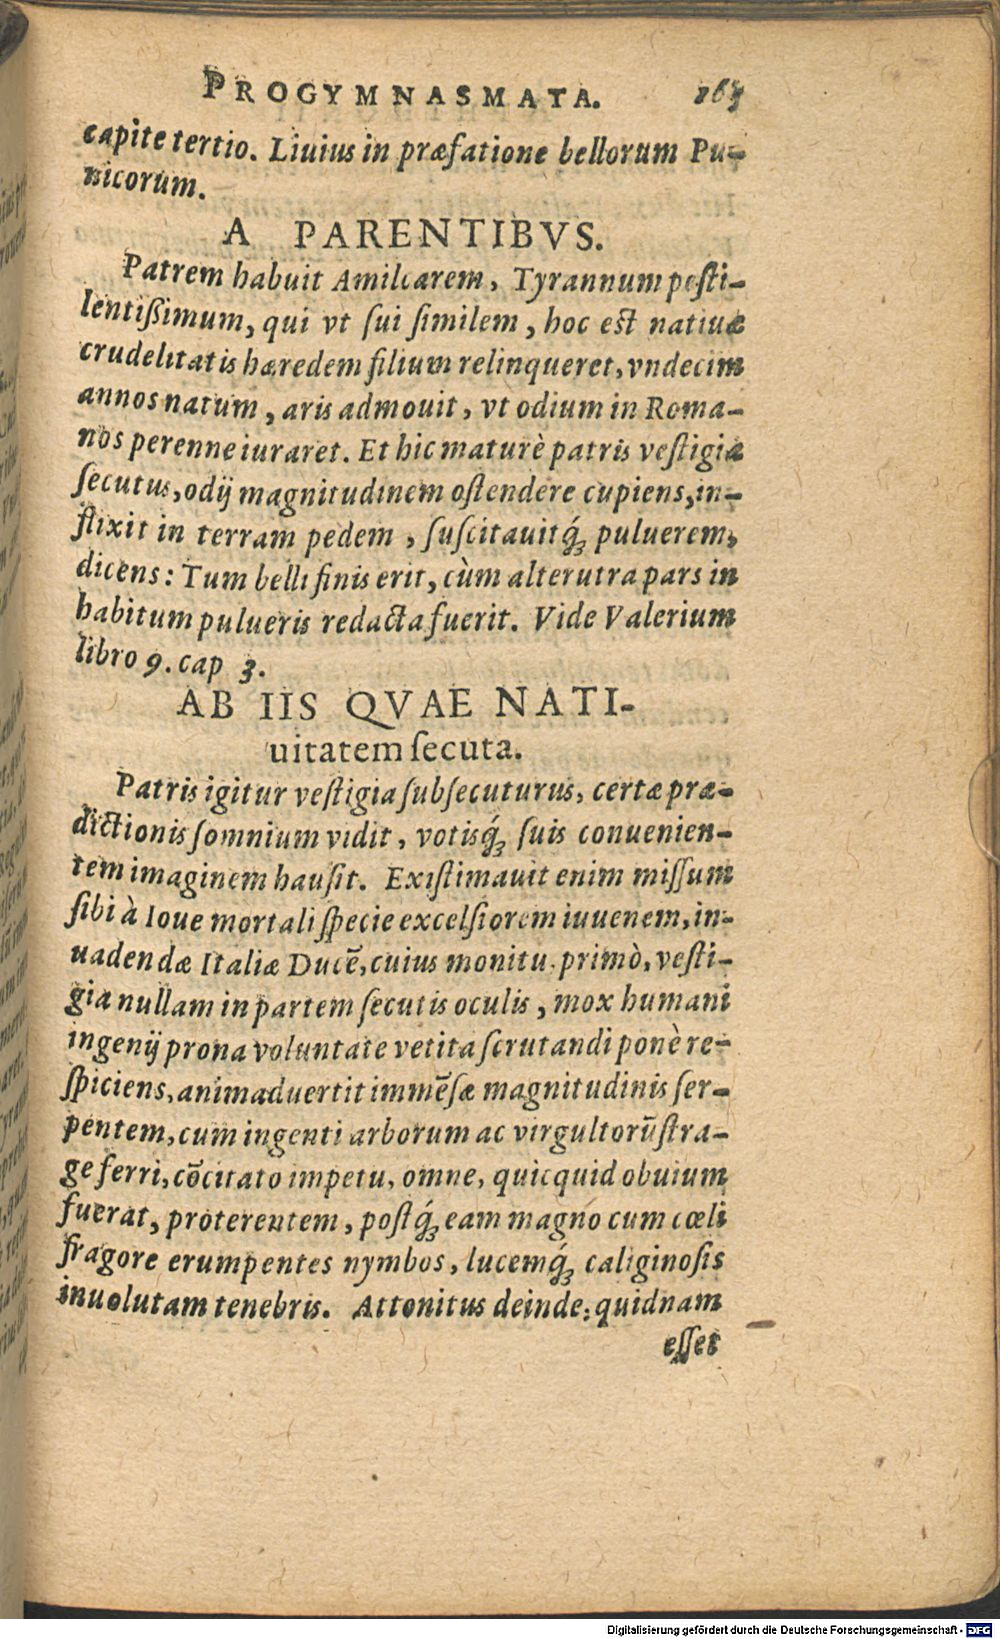 PROGYMNASMATA. 163
capite tertio. Liuius in præfatione bellorum Pu-
nicorum.
A PARENTIBVS.
Patrem habuit Amilcarem, Tyrannum pesti-
lentißimum, qui vt sui similem, hoc est natiuæ
crudelitatis hæredem filium relinqueret, vndecim
annos natum, aris admouit, vt odium in Roma-
nos perenne iuraret. Et hic maturè patris vestigia
secutus, odij magnitudinem ostendere cupiens, in-
flixit in terram pedem, suscitauitq́; puluerem,
dicens: Tum belli finis erit, cùm alterutra pars in
habitum pulueris redacta fuerit. Vide Valerium
libro 9. cap 3.
AB IIS QVAE NATI-
uitatem secuta.
Patris igitur vestigia subsecuturus, certæ præ-
dictionis somnium vidit, votisq́; suis conuenien-
tem imaginem hausit. Existimauit enim missum
sibi à Ioue mortali specie excelsiorem iuuenem, in-
uadendæ Italiæ Ducē, cuius monitu primò, vesti-
gia nullam in partem secutis oculis, mox humani
ingenij prona voluntate vetita scrutandi ponè re-
spiciens, animaduertit immēsæ magnitudinis ser-
pentem, cum ingenti arborum ac virgultorū stra-
ge ferri, cōcitato impetu, omne, quicquid obuium
fuerat, proterentem, postq́; eam magno cum cœli
fragore erumpentes nymbos, lucemq́; caliginosis
inuolutam tenebris. Attonitus deinde, quidnam
esset
Digitalisierung gefördert durch die Deutsche Forschungsgemeinschaft - DFG